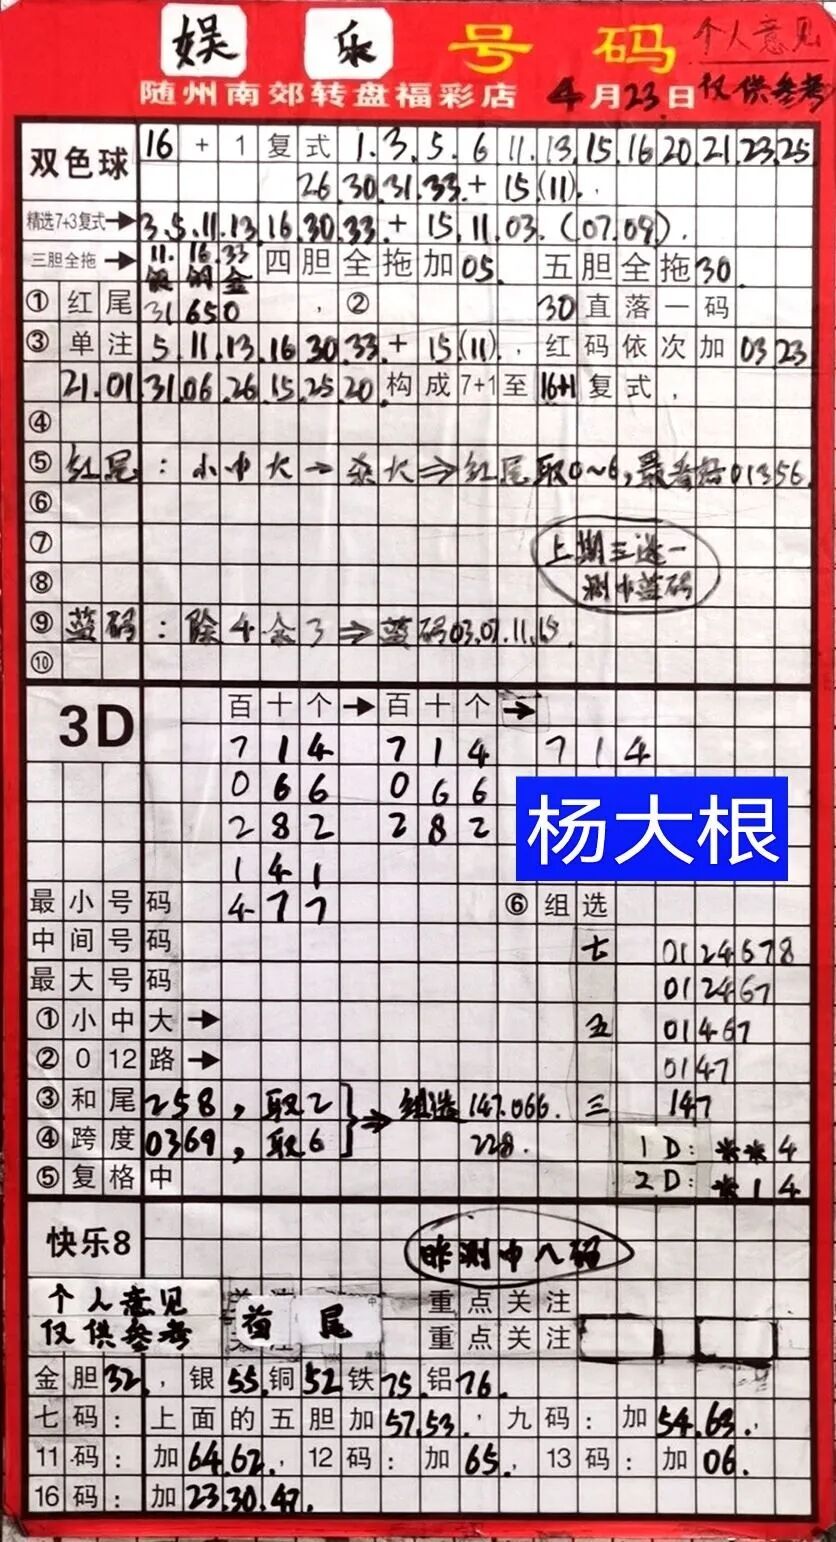 娱乐号码 个人意见
随州南郊转盘福彩店 4月23日 仅供参考
双色球 16+1复式 1.3.5.6 11.13.15.16.20.21.23.25
26.30.31.33.+15.(11).
精选7+3复式→ 3.5.11.13.16.30.33.+15.11.03.(07.09).
三胆全拖→ 11.16.33 四胆全拖加05. 五胆全拖30.
银 铜 金
①红尾 31650, ② 30直落一码
③单注 5.11.13.16.30.33.+15.(11).红码依次加03.23
21.01.31.06.26.15.25.20.构成7+1至16+1复式,
④
⑤红尾:小中大→杀大⇒红尾取0~6,最看好01356.
⑥
⑦ 上期三选一
⑧ 测中蓝码
⑨蓝码:除4余3⇒蓝码03.07.11.15.
⑩
3D 百十个→百十个→
714 714 714
066 066
282 282
141
杨大根
最小号码 477 ⑥组选
中间号码 七 0124678
最大号码 012467
①小中大→ 五 01467
②012路→ 0147
③和尾 258,取2 ⇒组选147.066. 三 147
④跨度 0369,取6 228. 1D:**4
⑤复格中 2D:*14
快乐8 昨测中八码
个人意见 重点关注
仅供参考 首尾 重点关注
金胆32.,银55.铜52铁75.铝76.
七码:上面的五胆加57.53.,九码:加54.63.,
11码:加64.62.,12码:加65.,13码:加06.
16码:加23.30.47.